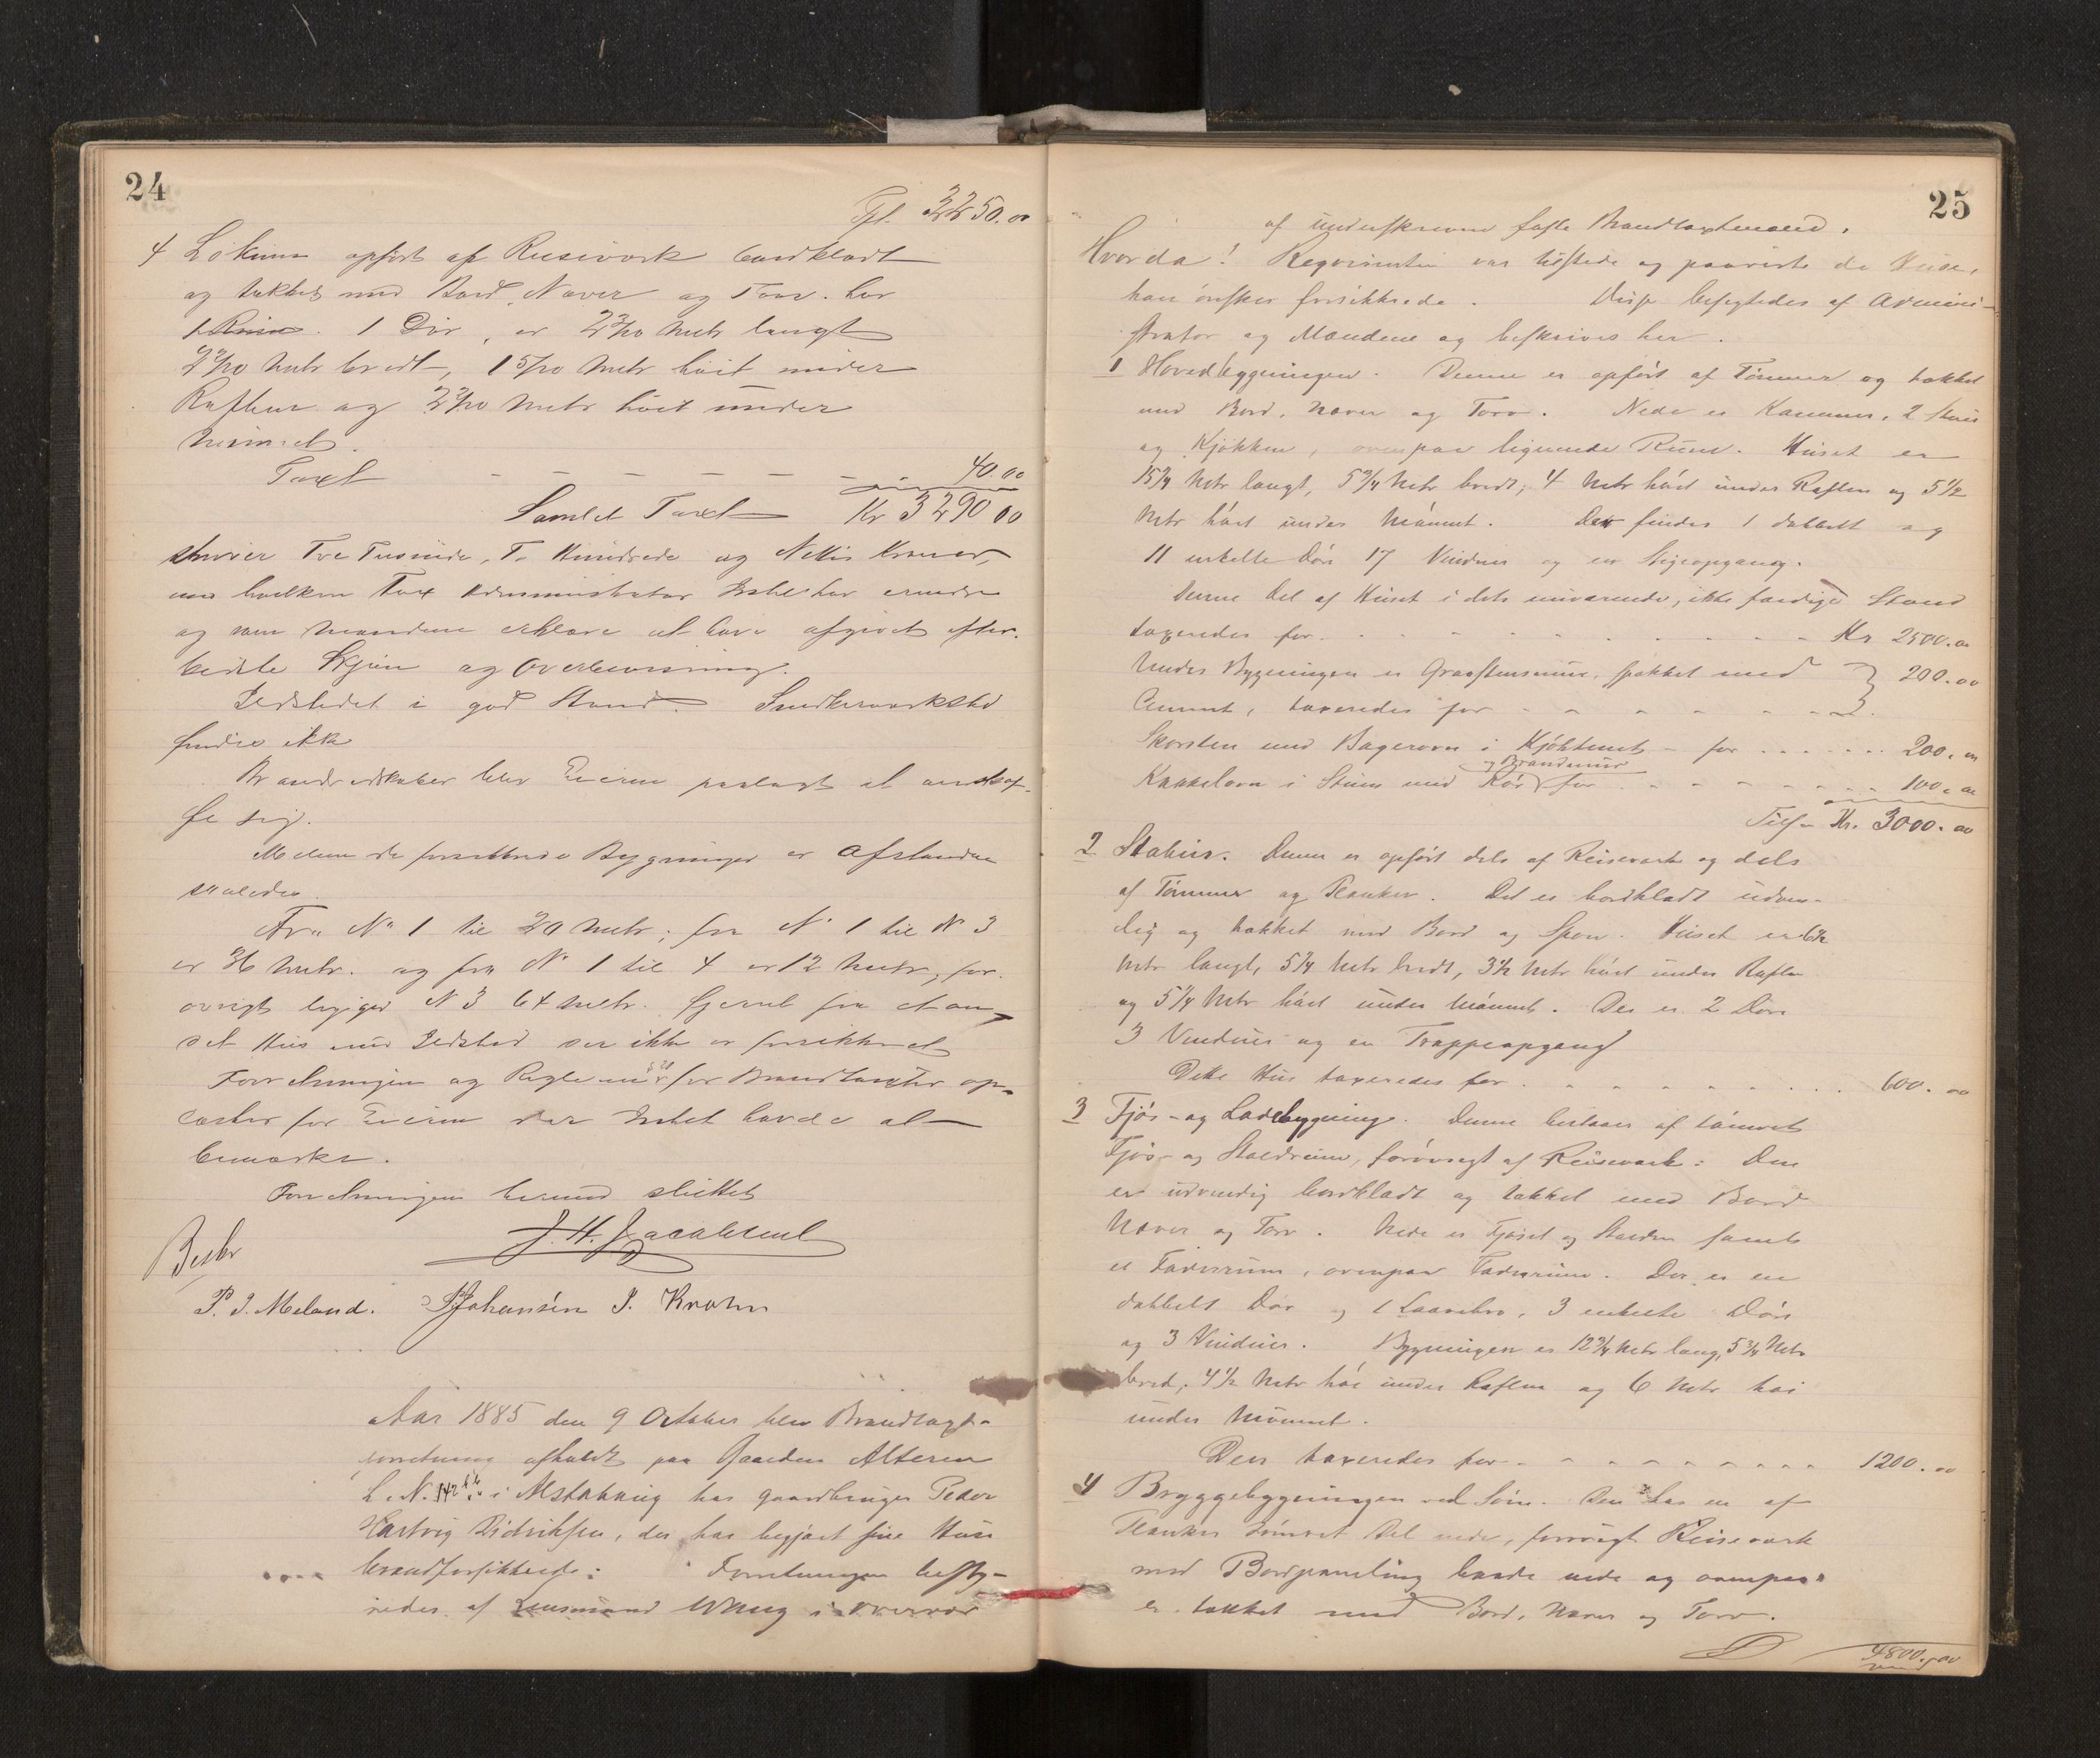 24
Tpt. 3250.00
4 Lokum opført af Reisværk bordklædt
og tækket med Bord, Næver og Torv. har
1 Rum. 1 Dør, er 2 3/10 Metr langt
2 3/10 Metr bredt, 1 5/10 Metr høit under
Raften og 2 3/10 Metr høit under
Mønnet.
Taxt - - - - - - - 40.00
Samlet Taxt Kr 3290 00
skriver Tre Tusinde, To Hundrede og Nitti Kroner,
mod hvilken Taxt Administrator Intet har at erindre
og som Mændene erklære at have afgivet efter
bedste Skjøn og Overbevisning.
Ildstedet i god Stand. Snedkerværksted
findes ikke
Brandredskaber blev Eieren paalagt at anskaf-
fe sig.
Mellem de forsikrede Bygninger er Afstanden
saaledes
Fra No 1 til 2 20 Metr; fra No 1 til No 3
er 36 Metr. og fra No 1 til 4 er 12 Metr, for-
øvrigt ligger N 3 64 Metr. fjernt fra et an-
det Hus med Ildsted der ikke er forsikret
Forretningen og Reglerne for Brandtaxter op-
læstes for Eieren der Intet havde at
bemærke.
Forretningen hermed sluttet
J. H. Jacobsen
P. J. Meland. Johansén P. Krohn
Aar 1885 den 9 October blev Brandtaxt-
forretning afholdt paa Gaarden Alteren
L. N. 142 i Alstahaug hos gaardbruger Peder
Hartvig Didriksen, der har begjært sine Huse
brandforsikrede: Forretningen besty-
redes af Lensmand Wang i Overvær
25
af underskrevne faste Brandtaxtmænd.
Hvorda! Reqvirenten var tilstede og paaviste de Huse,
han ønsker forsikrede. Disse besigtedes af Admini-
strator og Mændene og beskrives her.
1 Hovedbygningen. Denne er opført af Tømmer og tækket
med Bord, Næver og Torv. Nede er Kammer, 2 Stuer
og Kjøkken, ovenpaa lignende Rum. Huset er
15 3/4 Metr langt, 5 3/4 Metr bredt, 4 Metr høit under Raften og 5 1/2
Metr høit under Mønnet. Der findes 1 dobbelt og
11 enkelte Døre 17 Vinduer og en Stigeopgang.
Denne Del af Huset i dets nuværende, ikke færdige Stand
taxeredes for - - - - - - Kr 2500.00
Under Bygningen er Graastensmur, spækket med } 200.00
Cement, taxeredes for - - - - -
Skorsten med Bagerovn i Kjøkkenet - for . . . . . . 200.00
og Brandmur
Kakkelovn i Stuen med Rør for - - - - - 100.00
Tils. Kr. 3000.00
2 Stabur. Denne er opført dels af Reisværk og dels
af Tømmer og Planker. Det er bordklædt udven-
dig og tækket med Bord og Spon. Huset er 6 1/2
Metr langt, 5 1/4 Metr bredt, 3 1/2 Metr høit under Raften
og 5 1/4 Metr høit under Mønnet. Der er 2 Døre
3 Vinduer og en Trappeopgang
Dette Hus taxeredes for . - - - - - . . . 600.00
3 Fjøs- og Ladebygning. Denne bestaaer af tømret
Fjøs- og Staldrum, forøvrigt af Reisværk: Den
er udvendig bordklædt og tækket med Bord
Næver og Torv. Nede er Fjøset og Stalden samt
et Foderrum, ovenpaa Foderrum. Der er en
dobbelt Dør og 1 Laavebro, 3 enkelte Døre
og 3 Vinduer. Bygningen er 12 3/4 Metr lang, 5 3/4 Metr
bred, 4 1/2 Metr høi under Raften og 6 Metr høi
under Mønnet.
Den taxeredes for - - - - - - - - 1200.00
4 Bryggebygningen ved Søen. Den har en af
Planker tømret Del nede, forøvrigt Reisværk
med Bordpaneling baade nede og ovenpaa
er tækket med Bord, Næver og Torv.
4800.00